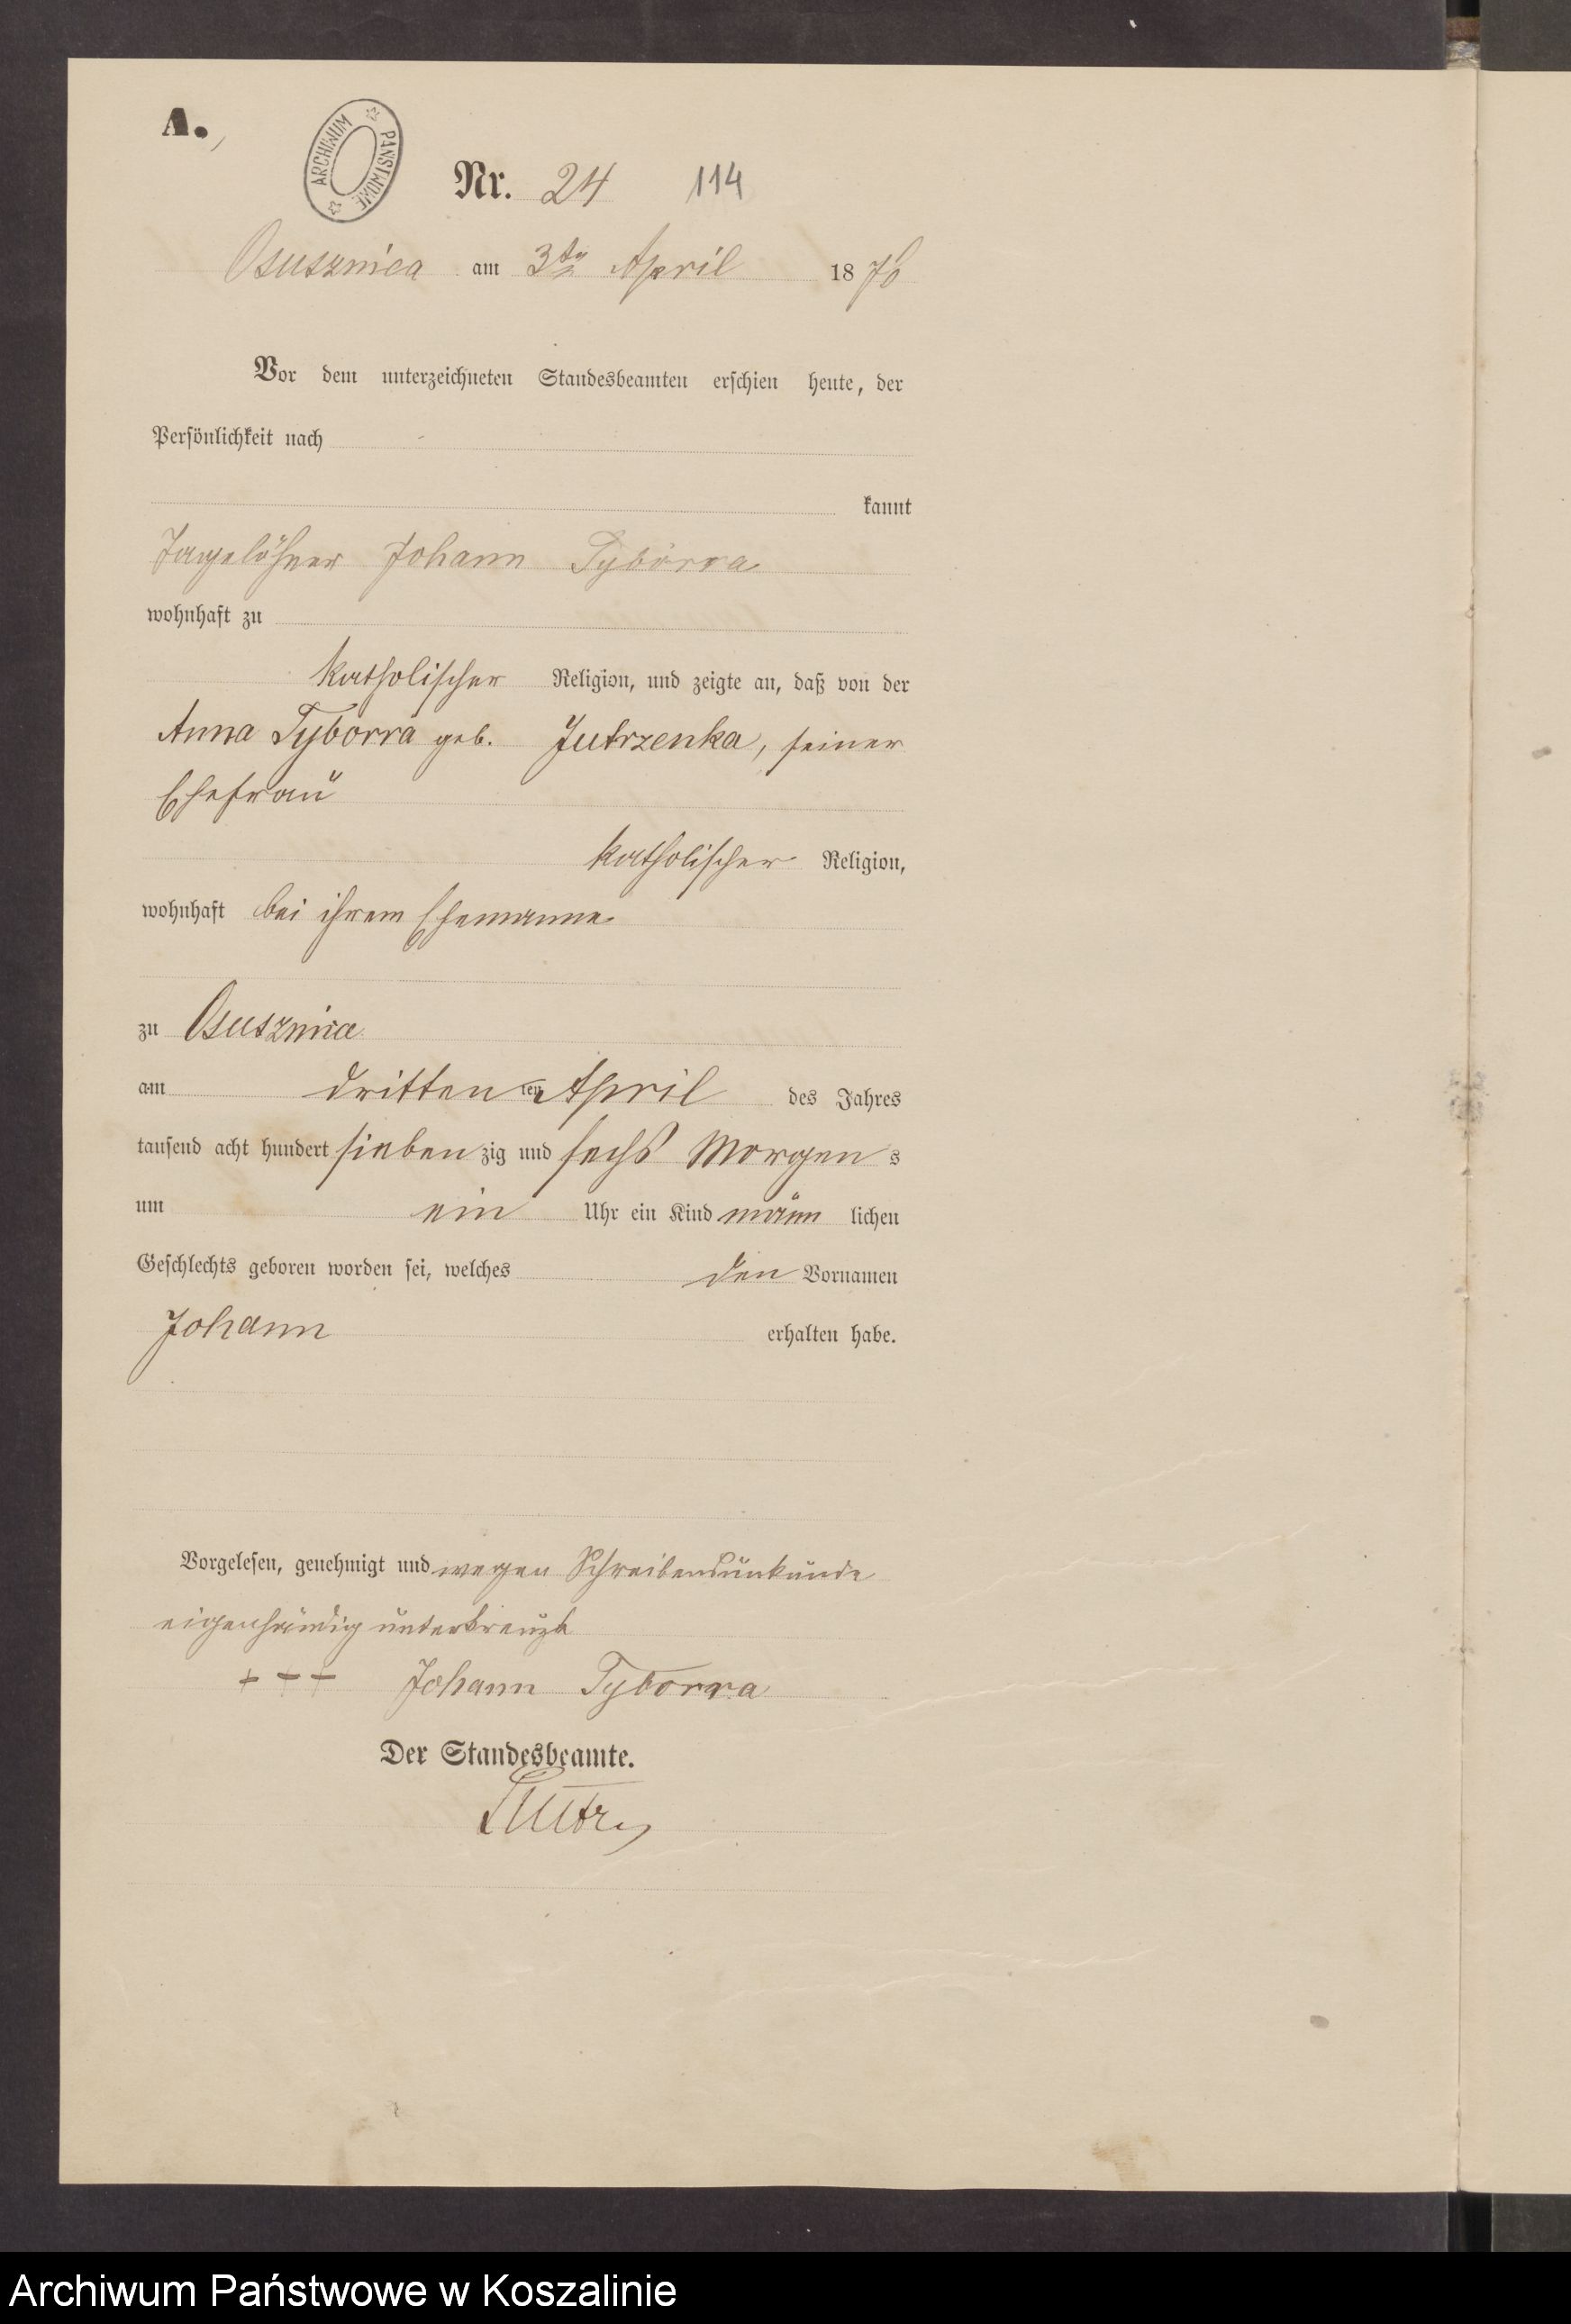 A.
ARCHIWUM PAŃSTWOWE
Nr. 24 114
Osusznica am 3ten April 1876
Vor dem unterzeichneten Standesbeamten erschien heute, der
Persönlichkeit nach
kannt
Tagelöhner Johann Tyborra
wohnhaft zu
katholischer Religion, und zeigte an, daß von der
Anna Tyborra geb. Jutrzenka, seiner
Ehefrau
katholischer Religion,
wohnhaft bei ihrem Ehemanne
zu Osusznica
am dritten ten April des Jahres
tausend acht hundert siebenzig und sechs Morgens
um ein Uhr ein Kind männlichen
Geschlechts geboren worden sei, welches den Vornamen
Johann erhalten habe.
Vorgelesen, genehmigt und wegen Schreibensunkunde
eigenhändig unterkreuzt
+ + + Johann Tyborra
Der Standesbeamte.
Archiwum Państwowe w Koszalinie